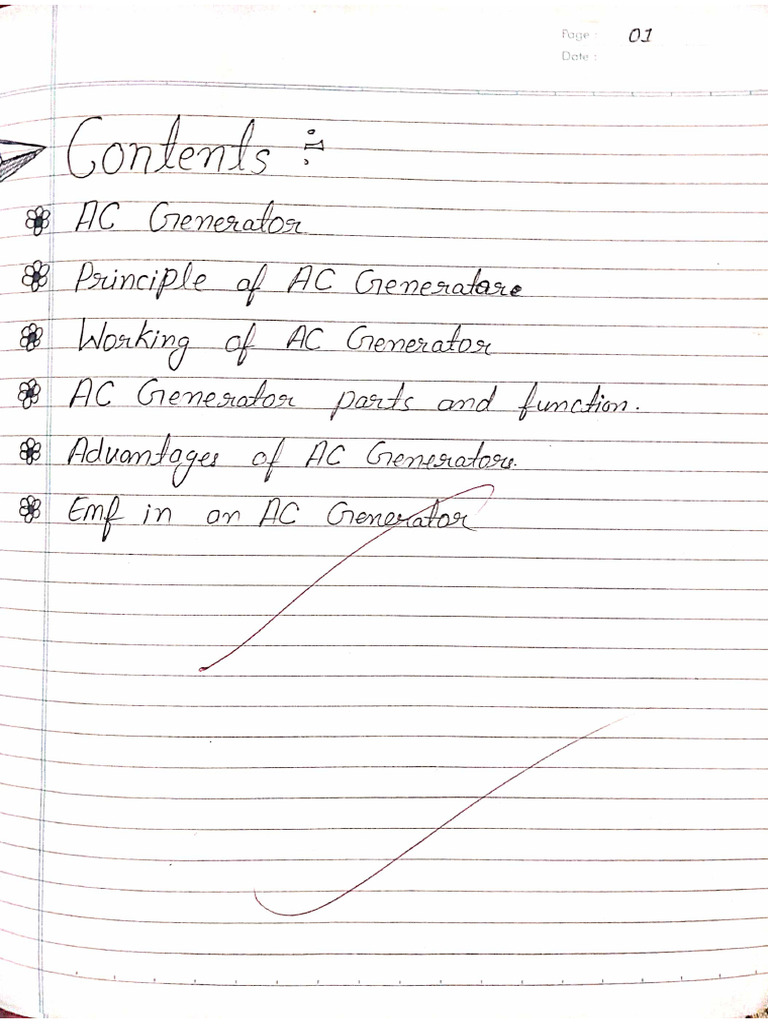 Page : 01
Date :
Contents :
AC Generator
Principle of AC Generator.
Working of AC Generator
AC Generator parts and function.
Advantages of AC Generators.
Emf in an AC Generator